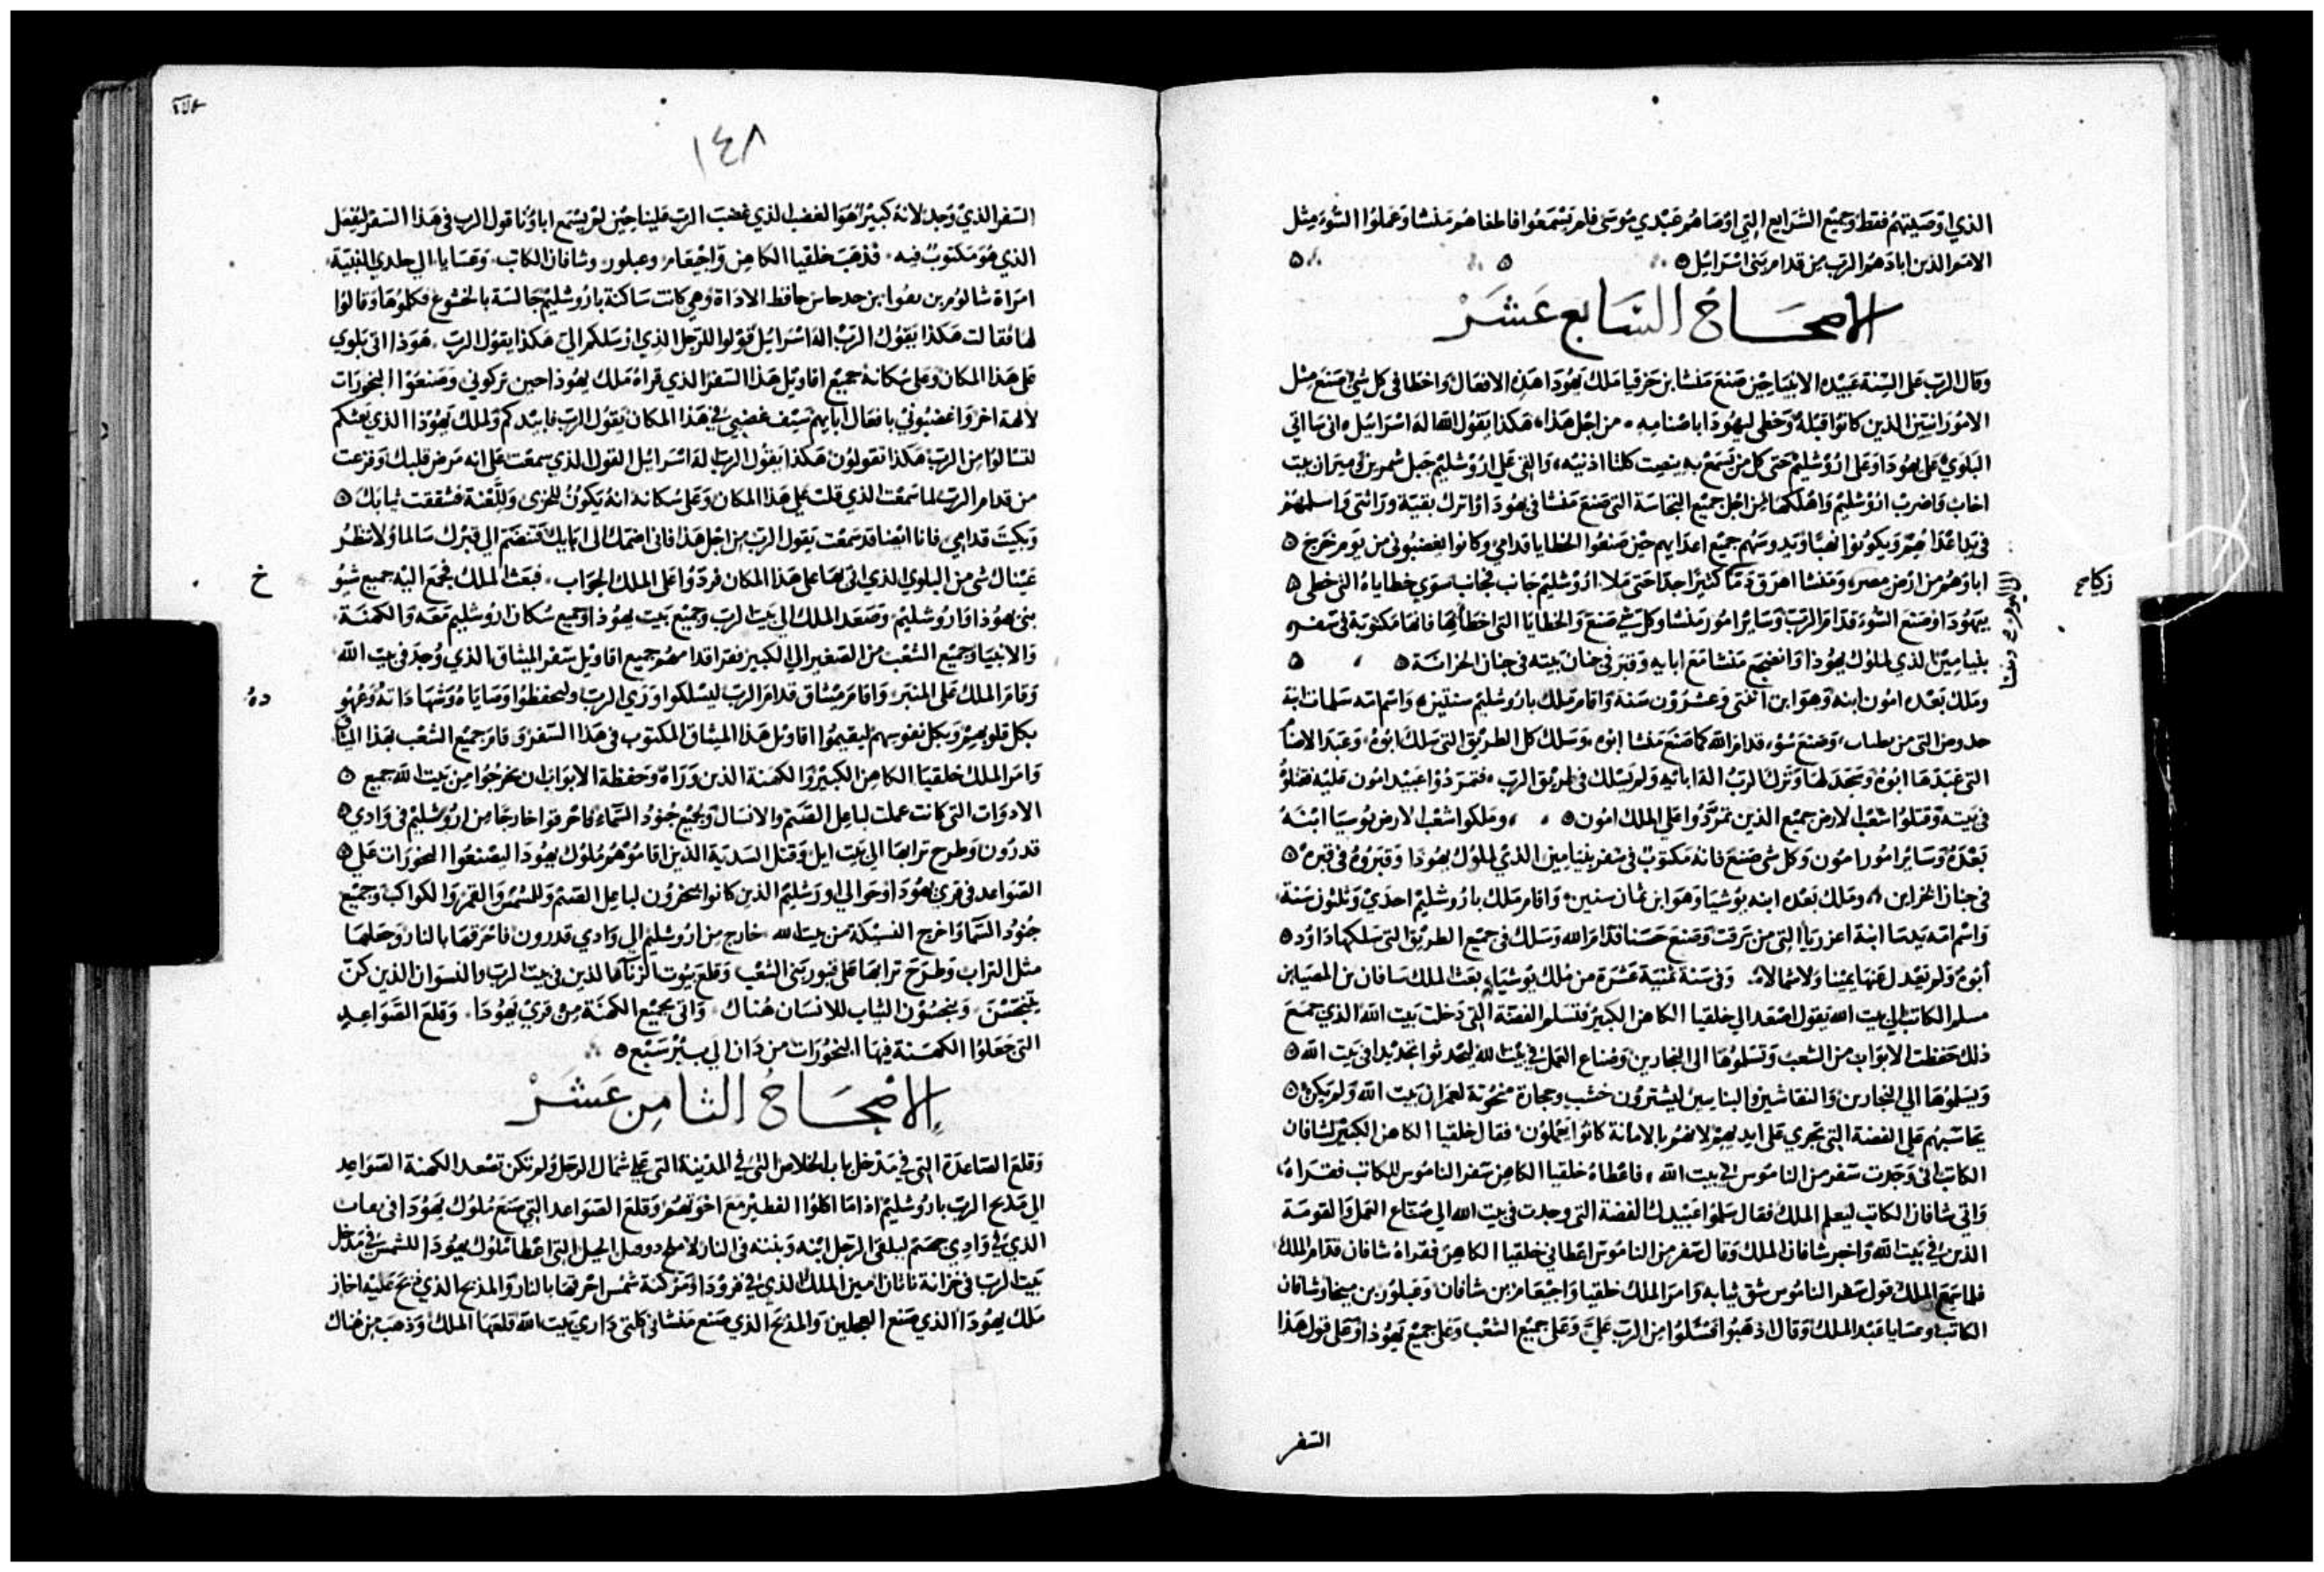 الذي اوصيتهم فقط وجميع الشرايع التي اوصاهم عبدي موسى فلم يسمعوا فاطغاهم منشا وعملوا السوء مثل
الامم الذين ابادهم الرب من قدام بني اسراييل
الاصحاح السابع عشر
وقال الرب على السنة عبيده الانبياء حين صنع منشا بن حزقيا ملك يهوذا هذه الافعال واخطا في كل شي صنع مثل
الامورانيين الذين كانوا قبله وخطى ليهودا باصنامه من اجل هذا هكذا يقول الله اله اسراييل اني ساتي
البلوي على يهودا وعلى اروشليم حتى كل من تسمع به ينصت كلتا اذنيه والقي على اروشليم حبل شمرين وميزان بيت
اخاب واضرب اروشليم واهلكها من اجل جميع النجاسة التي صنع منشا في يهودا واترك بقية وراثتي واسلمهم
في يد اعداهم ويكونوا نهبا وتدوسهم جميع اعدايهم حين صنعوا الخطايا قدامي وكانوا يغضبوني من يوم خرج
اباوهم من ارض مصر ومنشا اهرق دما كثيرا جدا حتى ملا اروشليم جانب لجانب سوي خطاياه التي خطى
بيهودا وصنع السوء قدام الرب وساير امور منشا وكل شي صنع والخطايا التي اخطا بها فانها مكتوبة في سفر
بنيامين الذي لملوك يهوذا وانضجع منشا مع ابايه وقبر في جنان بيته في جنان الخزانة
وملك بعده امون ابنه وهو ابن اثنتي وعشرون سنة واقام ملك باروشليم سنتين واسم امه سلمات ابنة
التي من وصنع سوء قدام الله كما صنع منشا ابوه وسلك كل الطريق التي سلك ابوه وعبد الاصنام
التي عبدها ابوه وسجد لها وترك الرب اله اباءيه ولم يسلك في طريق الرب فتمردوا عبيد امون عليه فقتلوه
في بيته وقتلوا شعب الارض جميع الذين تمردوا على الملك امون وملكوا شعب الارض يوسيا ابنه
بعده وساير امور امون وكل شي صنع فانه مكتوب في سفر بنيامين الذي لملوك يهودا وقبروه في قبره
في جنان الخزاين وملك بعده ابنه يوشيا وهو ابن ثمان سنين واقام ملك باروشليم احدي وثلثون سنة
واسم امه يدسا ابنة اعزريا التي من وصنع حسنا قدام الله وسلك في جميع الطريق التي سلكها داود
أبوه ولم يعدل عنها يمينا ولا شمالا وفي سنة ثمنية عشرة من ملك يوشيا بعث الملك شافان بن
مسلم الكاتب الي بيت الله يقول اصعد الي خلقيا الكاهن الكبير فتسلم الفضة التي دخلت بيت الله الذي جمع
ذلك حفظت الابواب من الشعب وتسلموها الى النجارين وصناع العمل في بيت الله ليحدثوا تجديدا في بيت الله
ويسلموها الي النجارين والنقاشين والبنايين ليشترون خشب وحجارة منحوتة لعمران بيت الله ولم يكن
يحاسبهم على الفضة التي تجري على ايديهم لانهم بالامانة كانوا يعملون فقال خلقيا الكاهن الكبير لشافان
الكاتب اني وجدت سفر من الناموس في بيت الله فاعطاه خلقيا الكاهن سفر الناموس للكاتب فقراه
واتي شافان الكاتب ليعلم الملك فقال سلموا عبيدك الفضة التي وجدت في بيت الله الي صناع العمل والقومة
الذين في بيت الله واخبر شافان الملك وقال سفر من الناموس اعطاني خلقيا الكاهن فقراه شافان قدام الملك
فلما سمع الملك قول سفر الناموس شق ثيابه وامر الملك خلقيا واحيقام بن شافان وعبلور بن ميخا وشافان
الكاتب وعسايا عبد الملك وقال اذهبوا فسلوا من الرب علي وعلى جميع الشعب وعلى جميع يهوذا وعلى قول هذا
السفر
١٤٨
السفر الذي وجد لانه كبير هو الغضب الذي غضب الرب علينا حين لم يسمع اباونا قول الرب في هذا السفر ليفعل
الذي هو مكتوب فيه فذهب خلقيا الكاهن واحيقام وعبلور وشافان الكاتب وعسايا الي خلدي النبية
امراة شالوم بن حافظ الاداة وهي كانت ساكنة باروشليم جالسة بالخشوع فكلموها وقالوا
لها فقالت هكذا يقول الرب اله اسراييل قولوا للرجل الذي ارسلكم الي هكذا يقول الرب هوذا اتي بلوي
على هذا المكان وعلى سكانه جميع اقاويل هذا السفر الذي قراه ملك يهوذا حين تركوني وصنعوا البخورات
لالهة اخر واغضبوني بافعال ايديهم سيف غضبي في هذا المكان يقول الرب فابيدكم ولملك يهوذا الذي بعثكم
لتسالوا من الرب هكذا تقولون هكذا يقول الرب اله اسراييل القول الذي سمعت على انه مرض قلبك وفزعت
من قدام الرب لما سمعت الذي قلت على هذا المكان وعلى سكانه انه يكون للخزى وللعنة فشققت ثيابك
وبكيت قدامي فانا ايضا قد سمعت يقول الرب من اجل هذا فاني اضمك الى ابايك فتنضم الي قبرك سالما ولا تنظر
عيناك شي من البلوي الذي اتي بها على هذا المكان فردوا على الملك الجواب فبعث الملك فجمع اليه جميع شيوخ
بني يهوذا واروشليم وصعد الملك الي بيت الرب وجميع بيت يهوذا وجميع سكان اروشليم معه والكهنة
والانبياء وجميع الشعب من الصغير الي الكبير فقرا قدامهم جميع اقاويل سفر الميثاق الذي وجد في بيت الله
وقام الملك على المنبر واقام ميثاق قدام الرب ليسلكوا وري الرب وليحفظوا وصاياه وشهاداته وعهوده
بكل قلوبهم وبكل نفوسهم ليقيموا اقاويل هذا الميثاق المكتوب في هذا السفر وقام جميع الشعب بهذا الميثاق
وامر الملك خلقيا الكاهن الكبير والكهنة الذين وراه وحفظة الابواب ان يخرجوا من بيت الله جميع
الادوات التي كانت عملت لباعل الصنم والانسال وجميع جنود السماء فاحرقوا خارجا من اروشليم في وادي
قدرون وطرح ترابها الي بيت ايل وقتل السدنة الذين اقاموهم ملوك يهودا ليصنعوا البخورات على
الصواعد في قري يهودا وحوالي اورشليم الذين كانوا يبخرون لباعل الصنم وللشمس والقمر والكواكب وجميع
جنود السماء واخرج النسكة من بيت الله خارج من اروشليم الي وادي قدرون فاحرقها بالنار وجعلها
مثل التراب وطرح ترابها على قبور بني الشعب وقلع بيوت الزناة الذين في بيت الرب والنسوان الذين كن
ينسجن الثياب للانسان هناك واتى بجميع الكهنة من قري يهودا وقلع الصواعد
التي جعلوا الكهنة فيها البخورات من دان الي بير سبع
الاصحاح الثامن عشر
وقلع الصاعدة التي في مدخل باب الخلاص التي في المدينة التي على شمال الرجل ولم تكن تصعد الكهنة الصواعد
الي مدبح الرب باروشليم اذاما اكلوا الفطير مع اخوتهم وقلع الصواعد التي صنع ملوك يهودا
الذي في وادي جهنم ليلقى الرجل ابنه وبنته في النار الخيل التي اعطا ملوك يهودا للشمس في مدخل
بيت الرب في خزانة ناثان امين الملك الذي في فرودا ومركبة شمس احرقها بالنار والمذبح الذي على علية احاز
ملك يهوذا الذي صنع العجلين والمذبح الذي صنع منشا في كلتى داري بيت الله قلعها الملك وذهب من هناك
خ